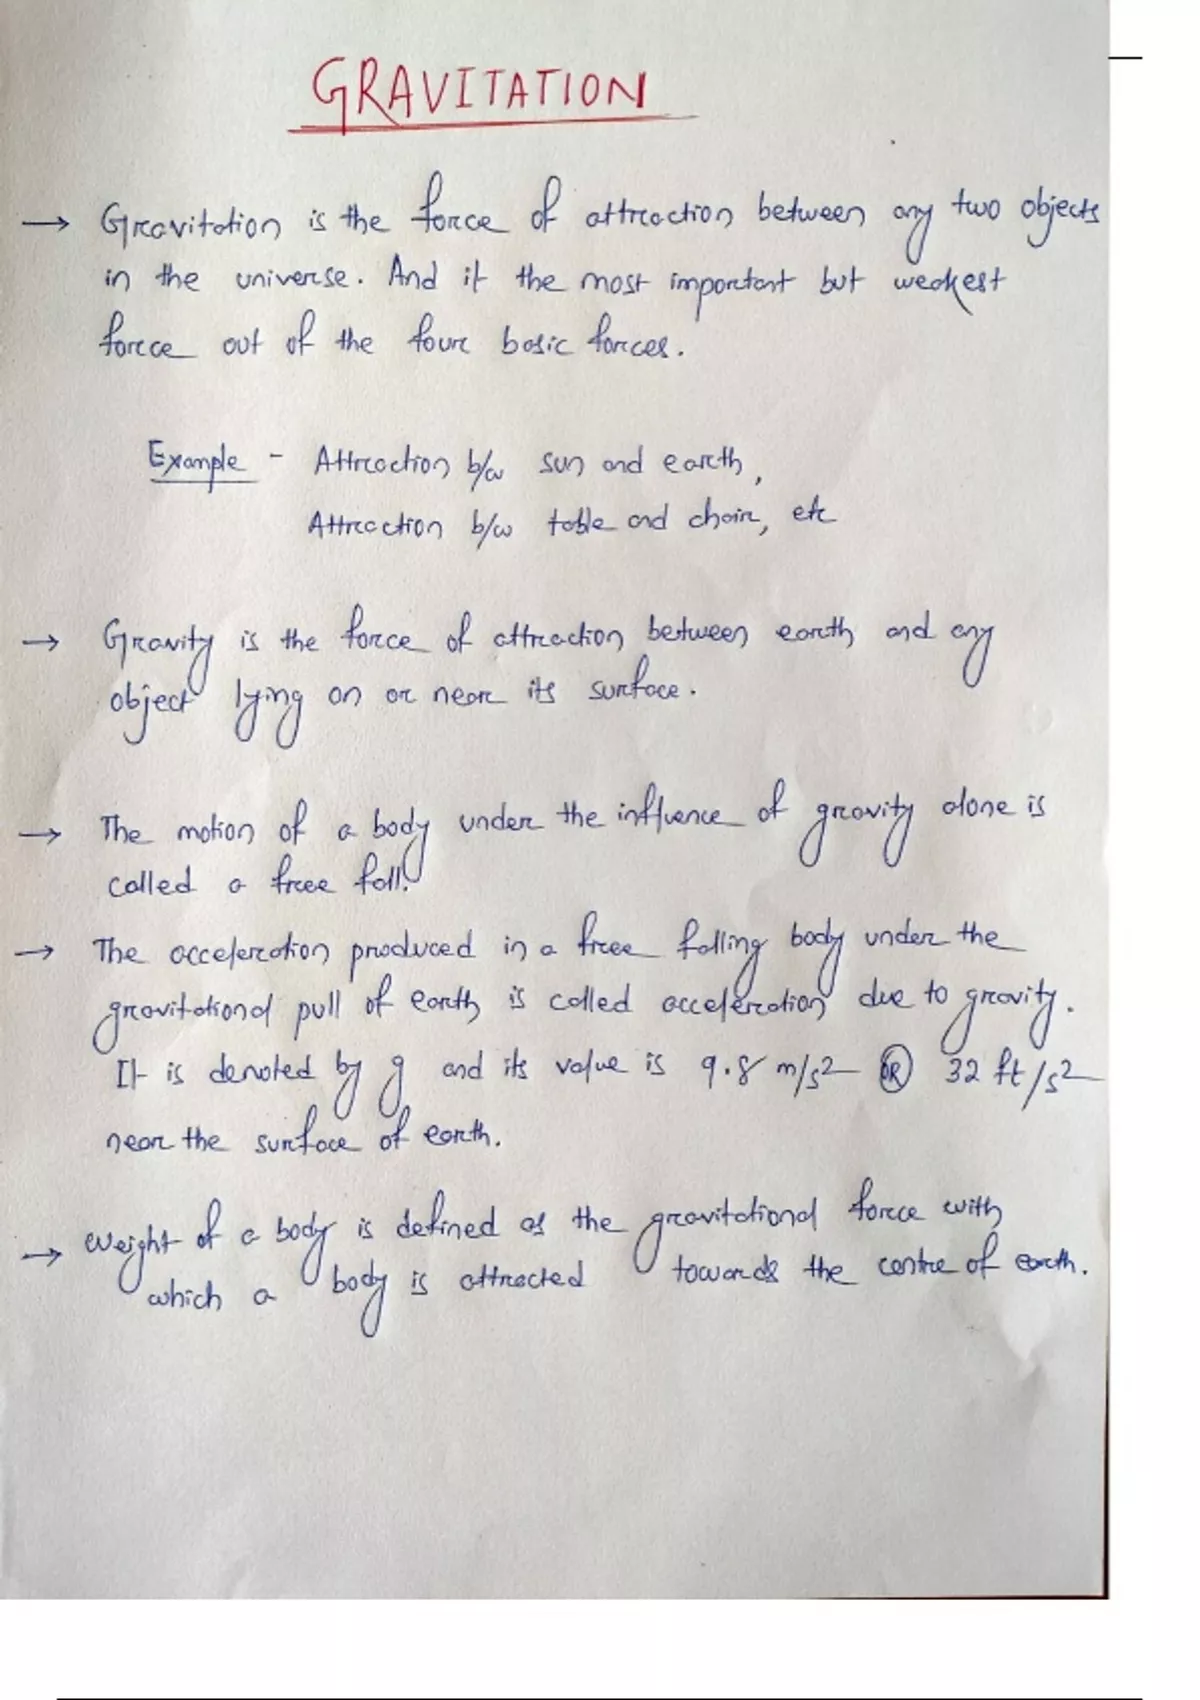 GRAVITATION
→ Gravitation is the force of attraction between any two objects
in the universe. And it the most important but weakest
force out of the four basic forces.
Example - Attraction b/w sun and earth,
Attraction b/w table and chair, etc
→ Gravity is the force of attraction between earth and any
object lying on or near its surface.
→ The motion of a body under the influence of gravity alone is
called a free fall.
→ The acceleration produced in a free falling body under the
gravitational pull of earth is called acceleration due to gravity.
It is denoted by g and its value is 9.8 m/s2 OR 32 ft/s2
near the surface of earth.
→ Weight of a body is defined as the gravitational force with
which a body is attracted towards the centre of earth.